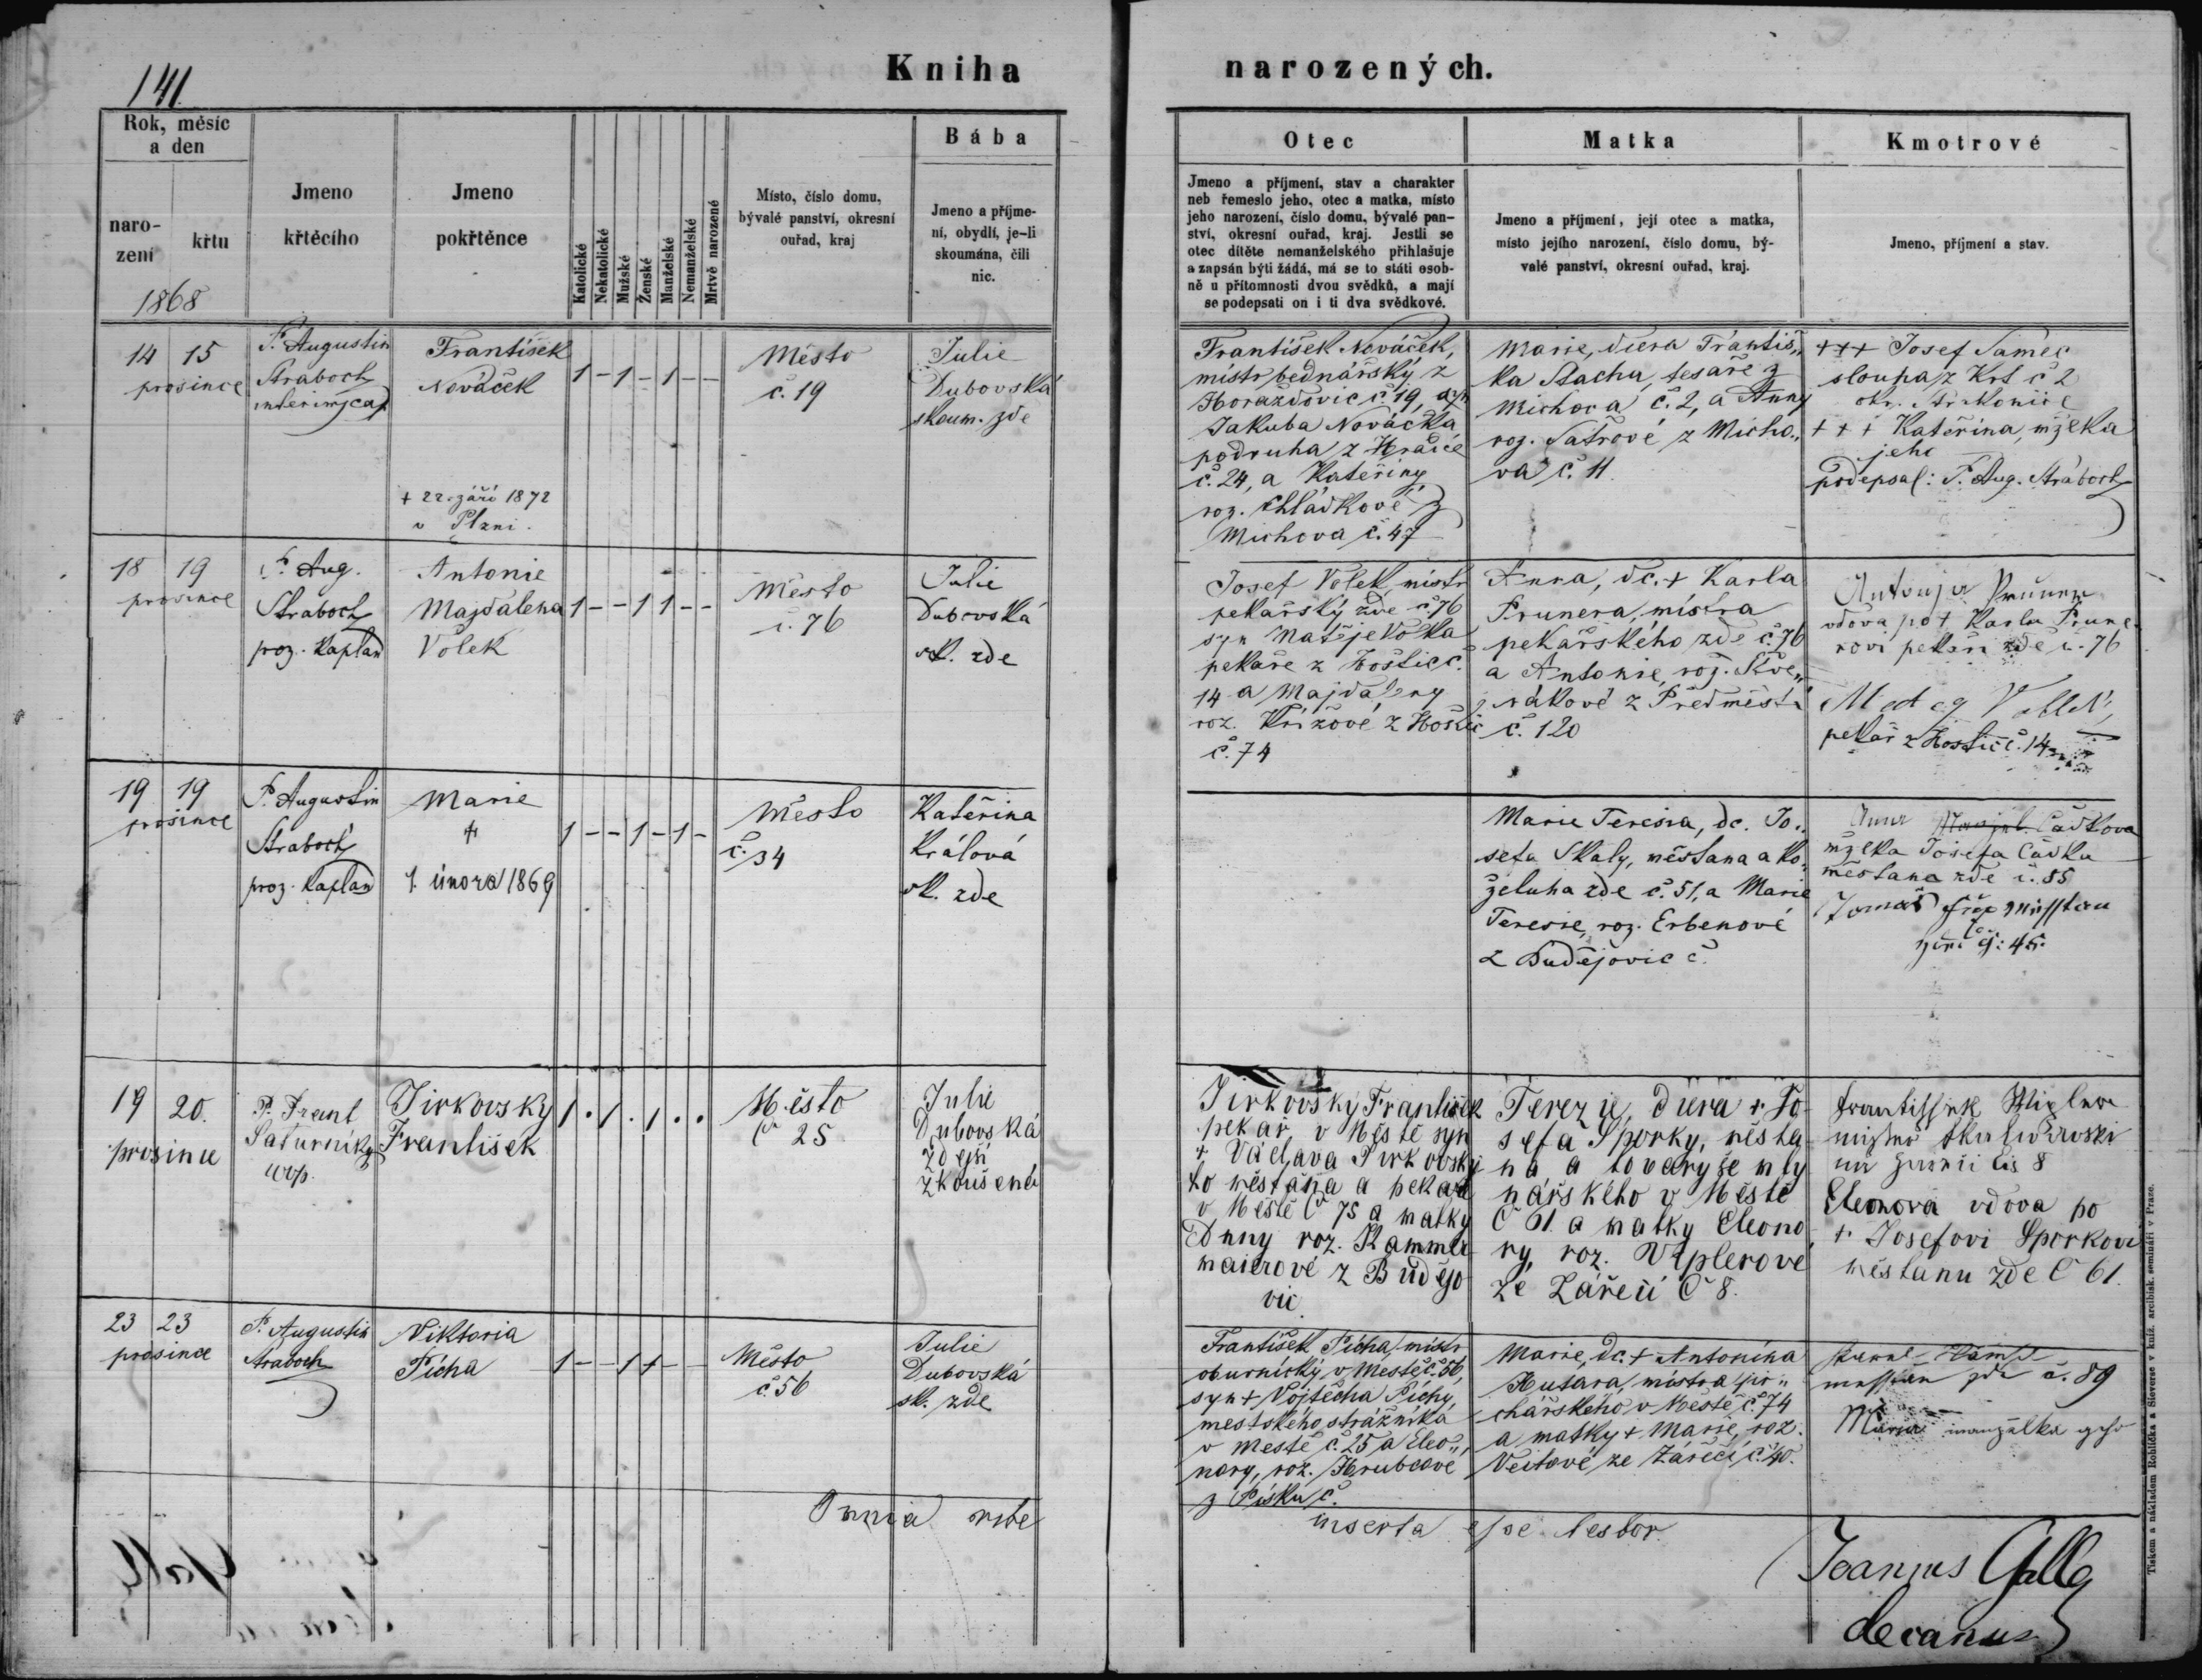 141.
Kniha
narozených.
Rok, měsíc
a den
naro-
zení
křtu
1868
Jmeno
křtěcího
Jmeno
pokřtěnce
Katolické
Nekatolické
Mužské
Ženské
Manželské
Nemanželské
Mrtvě narozené
Místo, číslo domu,
bývalé panství, okresní
ouřad, kraj
Bába
Jmeno a příjme-
ní, obydlí, je-li
skoumána, čili
nic.
Otec
Jmeno a příjmení, stav a charakter
neb řemeslo jeho, otec a matka, místo
jeho narození, číslo domu, bývalé pan-
ství, okresní ouřad, kraj. Jestli se
otec dítěte nemanželského přihlašuje
a zapsán býti žádá, má se to státi osob-
ně u přítomnosti dvou svědků, a mají
se podepsati on i ti dva svědkové.
Matka
Jmeno a příjmení, její otec a matka,
místo jejího narození, číslo domu, bý-
valé panství, okresní ouřad, kraj.
Kmotrové
Jmeno, příjmení a stav.
14 15
prosince
P. Augustin
Straboch
František
Nováček
+ 22. září 1872
v Plzni.
1 - 1 - 1 - -
Město
č. 19
Julie
Dubovská
skoum. zde
František Nováček,
mistr bednářský z
Horažďovic č. 19, syn
Jakuba Nováčka
podruha z Hradce
č. 24, a Kateřiny
roz. Chládkové z
Míchova č. 47
Marie, dcera Františ„
ka Stacha, tesaře z
Míchova č. 2, a Anny
roz. Šatrové z Mícho„
va č. 11.
+++ Josef Samec
sloupa z Krt č 2
okr. Strakonice
+++ Kateřina, mželka
jeho
podepsal: P. Aug. Straboch
18 19
prosince
P. Aug.
Straboch
proz. kaplan
Antonie
Majdalena
Volek
1 - - 1 1 - -
Město
č. 76
Julie
Dubovská
sk. zde
Josef Volek, mistr
pekařský zde č. 76
syn Matěje Volka
pekaře z Hoštic č.
14 a Majdaleny
roz. Křížové z Hoštic
č. 74
Anna, dc. + Karla
Prunera, mistra
pekařského zde č. 76
a Antonie, roz. Stře„
nákové z Předměstí
č. 120
vdova po + Karlu Prune-
rovi pekaři zde č. 76
pekař z Hoštic č. 14
19 19
prosince
P. Augustin
Straboch
proz. kaplan
Marie
+
1. února 1869
1 - - 1 - 1 -
Město
č. 34
Kateřina
Králová
sk. zde
Marie Teresia, dc. Jo„
sefa Skály, měšťana a ko„
želuha zde č. 51, a Marie
Teresie, roz. Erbenové
z Budějovic č.
Anna Čadkova
mželka Josefa Čadka
měšťana zde č. 85
Tomáš
19 20.
prosince
P. Frant
Saturník
Jirkovský
František
1 . 1 . 1 . .
Město
č 25
Julie
Dubovská
zdejší
zkoušená
Jirkovský František
pekař v Městě syn
+ Václava Jirkovský
ho měšťana a pekaře
v Městě č 75 a matky
Anny roz. Kammer
maierové z Budějo
vic
Terezie, dcera + Jo-
sefa Sporky, měšťa
na a tovaryše mly
nářského v Městě
č 61 a matky Eleono
ry, roz. Viplerové
ze Zářečí č 8.
Eleonora vdova po
+ Josefovi Sporkovi
měšťanu zde č 61.
23 23
prosince
P. Augustin
Straboch
Viktoria
Pícha
1 - - 1 1 - -
Město
č 56
Julie
Dubovská
sk. zde
František Pícha, mistr
obuvnický v Městě č. 56,
syn + Vojtěcha Píchy,
městského strážníka
v městě č. 25 a Eleo„
nory, roz. Hrubcové
z Písku č.
Marie, dc. + Antonína
Hutara, mistra pro„
chařského v Městě č. 74
a matky + Marie, roz.
Veitové ze Zářečí č. 40.
č. 89
Maria manželka geho
Omnia rite
inserta esse testor
Joannes Galla
decanus
Tiskem a nákladem Rohlíčka a Sieverse v kníž. arcibisk. semináři v Praze.